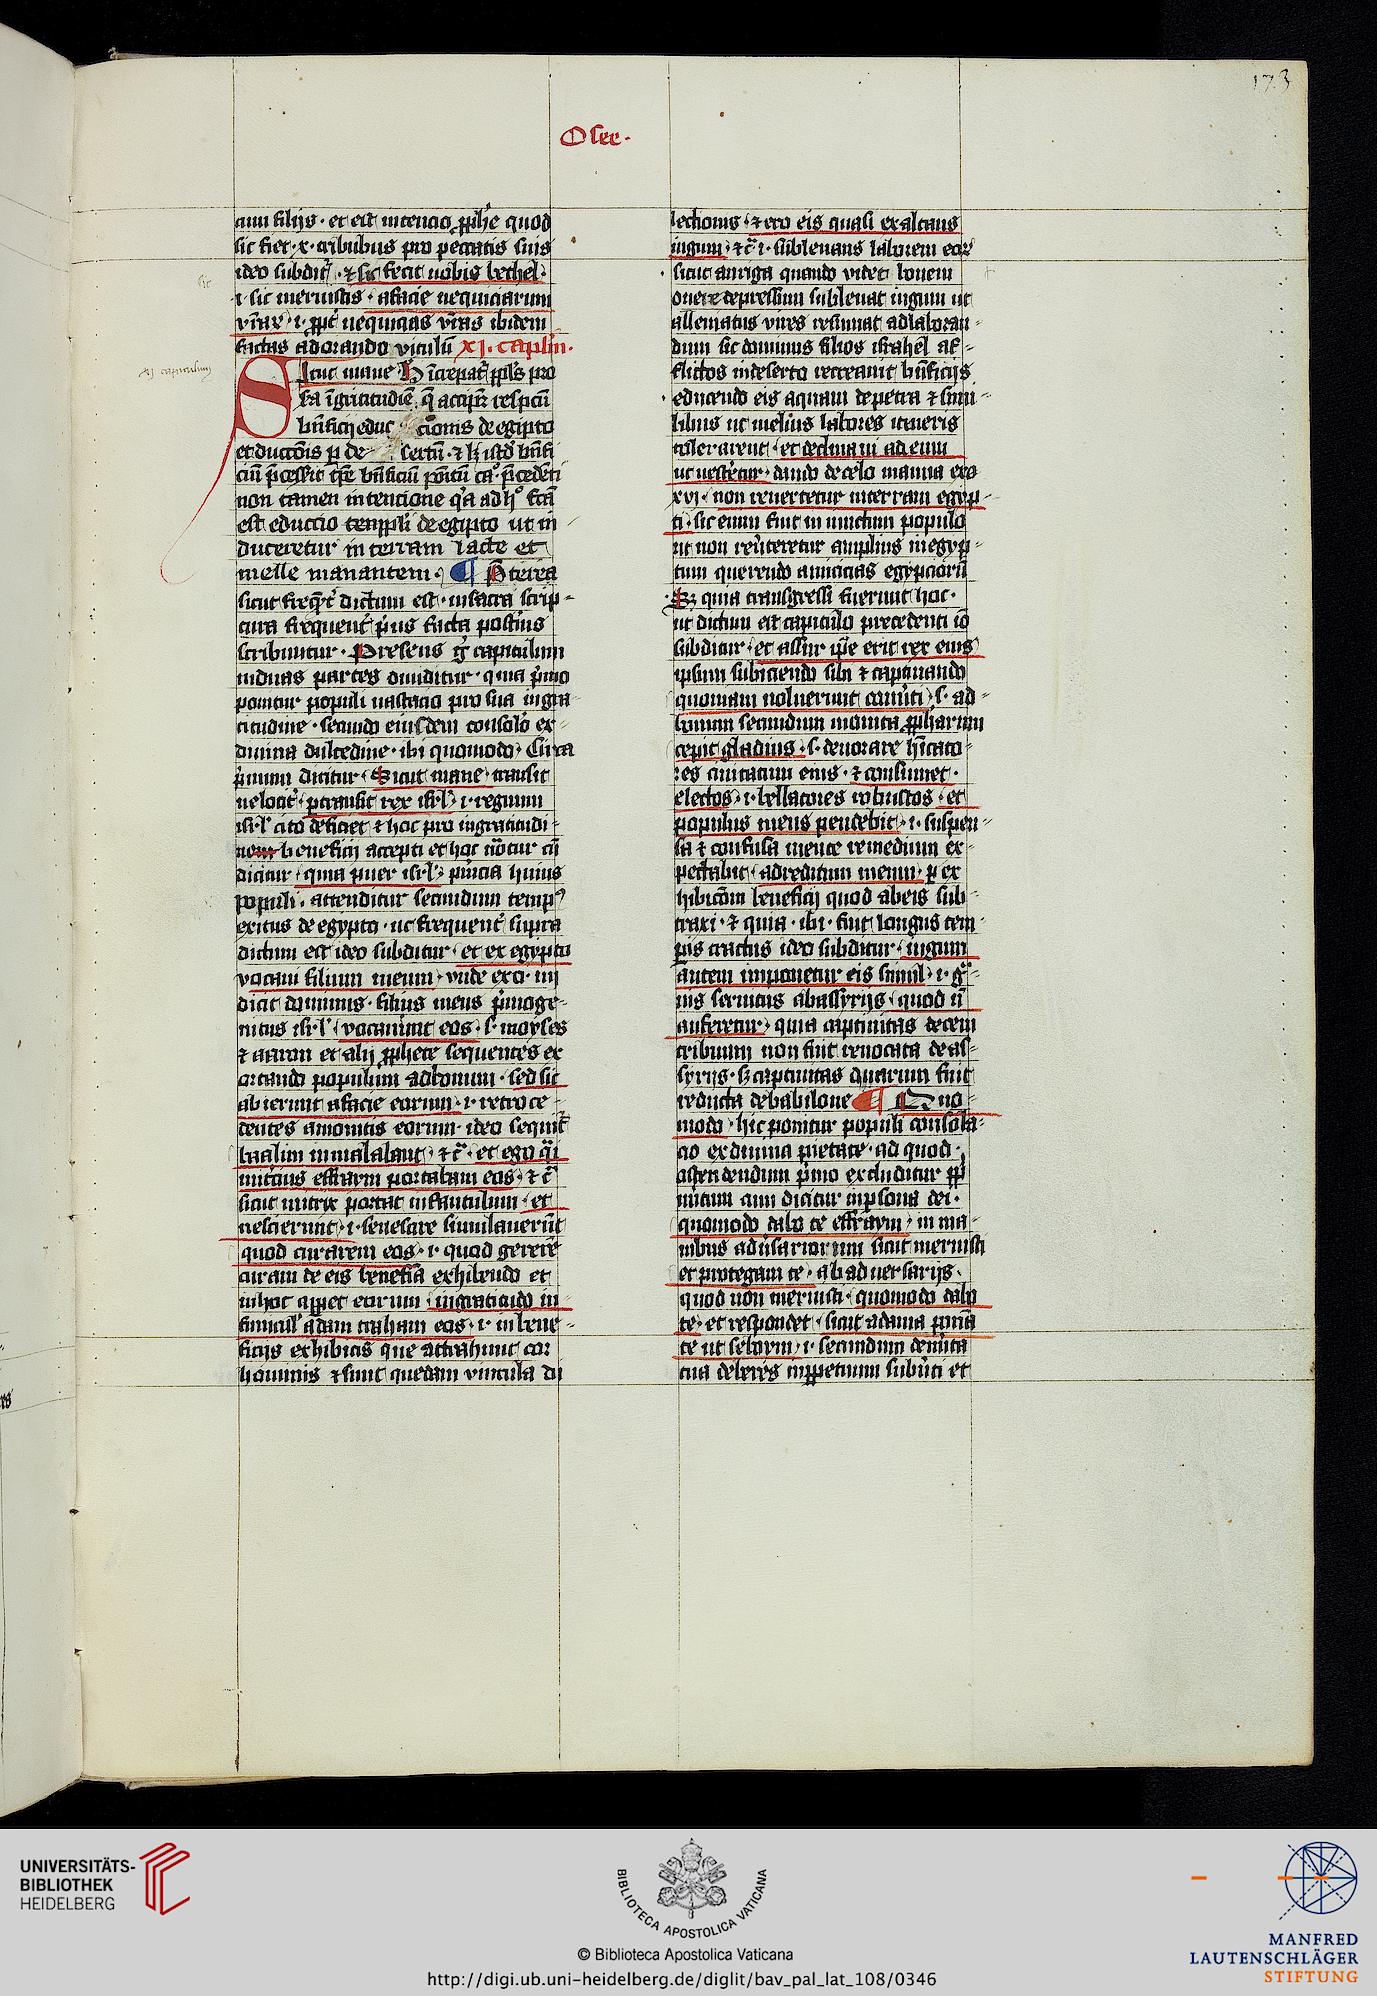 173
Osee.
cum filijs · et est intencio pphe quod
sic fiet · x · tribubus pro peccatis suis
ideo subdit · et sic fecit uobis bethel ·
i · sic meruistis · afacie nequiciarum
vrar · i · ppt nequicias vras ibidem
factas adorando vitulu xi · caplm ·
sic
xj capitulum
Sicut mane h increpat ppls pro
sua igratitudie q accipit respcu
bnficij educ cionis de egipto
et ductois p de sertu · et licet istd bnfi
ciu pcessit
non tamen intencione q'a ad h' fca
est eductio templi de egipto ut in
duceretur in terram lacte et
melle manantem · ¶ Pterea
sicut freqt dictum est · insacra scrip
tura frequent pus facta postius
scribuntur · Presens g capitulum
induas partes diuiditur · quia pmo
ponitur populi uastacio pro sua ingra
titudine · secundo eiusdem consolo ex
diuina dulcedine · ibi quomodo · Circa
pmum dicitur · Sicut mane · transit
uelocit · ptransit rex isrl · i · regnum
isrl cito deficiet et hoc pro ingratitudi
nem beneficij accepti et hoc notur cu
dicitur · quia puer isrl · puicia huius
populi · attenditur secundum temp9
exitus de egypto · ut frequent supra
dictum est ideo subditur · et ex egypto
vocaui filium meum · vnde exo · iiij
dicit dominus · filius meus pmoge
nitus isrl · vocauunt eos · s · moyses
et aaron et alij pphete sequentes ex
ortando populum adbonum · sed sic
abierunt afacie eorum · i · retroce
dentes amonitis eorum · ideo sequit
baalim inmolabant · etc · et ego qi
nutcius effraym portabam eos · etc
sicut nutrix portat infantulum · et
nescierunt · i · se nescire simulauerut
quod curarem eos · i · quod gerere
curam de eis benefia exhibendo et
inhoc appet eorum · ingratitudo in
funiculis adam traham eos · i · in bene
ficijs exhibitis que attrahunt cor
hominis et sunt quedam vincula di
lectionis · et ero eis quasi exaltans
iugum · etc · i · subleuans laborem eor
sicut auriga quando videt bouem
onere depressum subleuat iugum ut
alleuiatus vires resumat adlaboran
dum sic dominus filios israhel af
flictos indeserto recreauit bnficijs
educendo eis aquam depetra et simi
libus ut melius labores itineris
tollerarent · et declinaui ad eum
ut uesceretur · dando decelo manna exo
xvi · non reuertetur interram egyp
ti · sic enim fuit in iunctum populo
ut non reuteretur amplius inegyp
tum querendo amicicias egypcioru
Sz quia transgressi fuerunt hoc ·
ut dictum est capitulo precedenti io
subditur · et assur ipe erit rex eius
ipsum subiciendo sibi et captiuando
quoniam noluerunt conuti · s · ad
bonum secundum monita pphetarum
cepit gladius · s · deuorare hitato
res ciuitatum eius · et consumet ·
electos · i · bellatores robustos · et
populus meus pendebit · i · suspen
sa et confusa mente remedium ex
pectabit · adreditum meum · p ex
hibitom beneficij quod abeis sub
traxi · et quia · ibi · fuit longus tem
pis tractus ideo subditur · iugum
autem imponetur eis simul · i · g
uis seruitus abassyrijs · quod n
auferetur · quia captiuitas decem
tribuum non fuit reuocata deas
syrijs · sz captiuitas duarum fuit
reducta debabilone ¶ Quo
modo · hic ponitur populi consola
cio exdiuina pietate · ad quod
ostendendum pmo excluditur pp
mitum cum dicitur inpsona dei ·
quomodo dabo te effraym · in ma
nibus adusariorum sicut meruisti
et protegam te · ab aduersarijs ·
quod non meruisti · quomodo dabo
te · et respondet · sicut adama ponam
te ut seboym · i · secundum demita
tua deleres inppetuum subuti et
UNIVERSITÄTS-
BIBLIOTHEK
HEIDELBERG
BIBLIOTECA APOSTOLICA VATICANA
© Biblioteca Apostolica Vaticana
http://digi.ub.uni-heidelberg.de/diglit/bav_pal_lat_108/0346
MANFRED
LAUTENSCHLÄGER
STIFTUNG